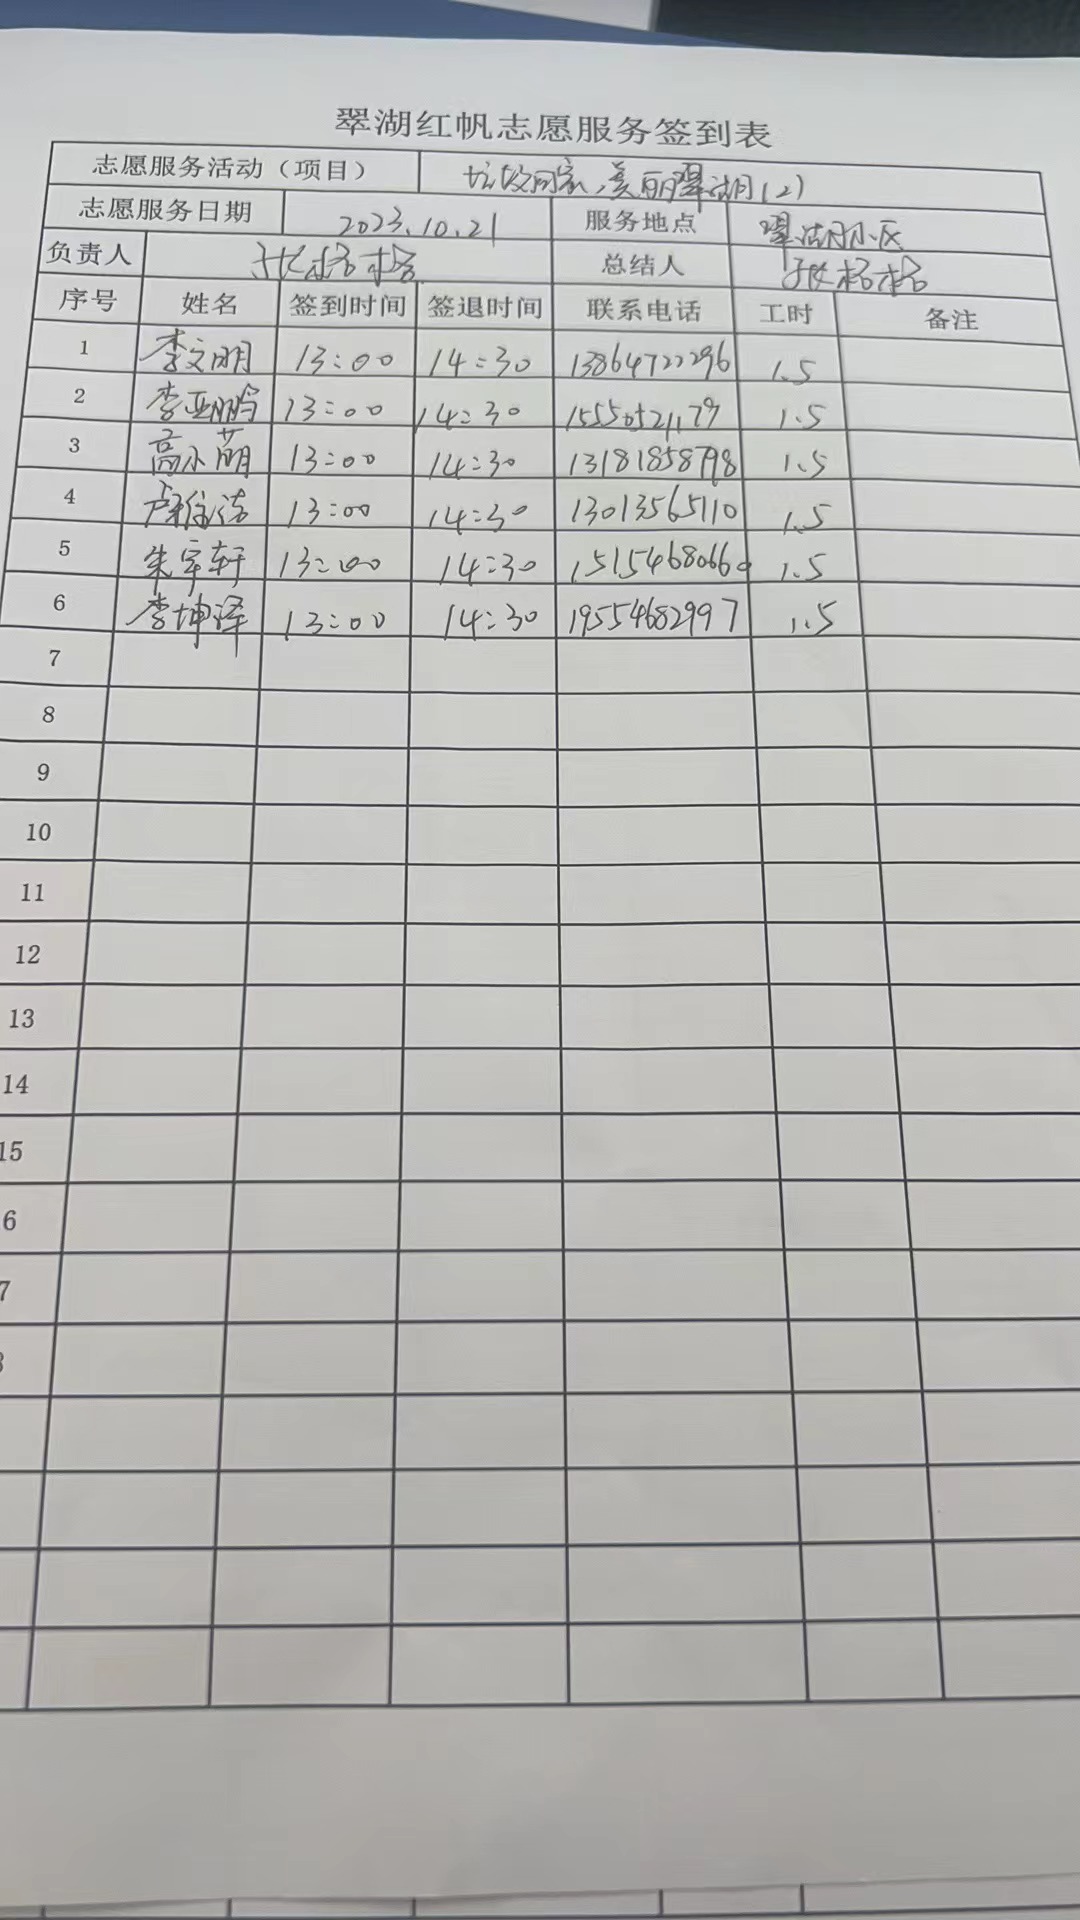 翠湖红帆志愿服务签到表
志愿服务活动（项目） 垃圾回家,美丽翠湖(2)
志愿服务日期 2023.10.21 服务地点 翠湖小区
负责人 张格格 总结人 张格格
序号 姓名 签到时间 签退时间 联系电话 工时 备注
1 李文明 13:00 14:30 13864722296 1.5
2 李亚鹏 13:00 14:30 15550521179 1.5
3 高小萌 13:00 14:30 13181858798 1.5
4 13:00 14:30 13013565110 1.5
5 朱宇轩 13:00 14:30 15154680660 1.5
6 李坤泽 13:00 14:30 19554682997 1.5
7
8
9
10
11
12
13
14
15
6
7